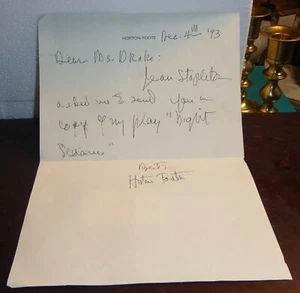 HORTON FOOTE Dec. 4th '93
Dear Ms. Drake:
Jean Stapleton
asked me to send you a
copy of my play "Night
Seasons"
Best,
Horton Foote